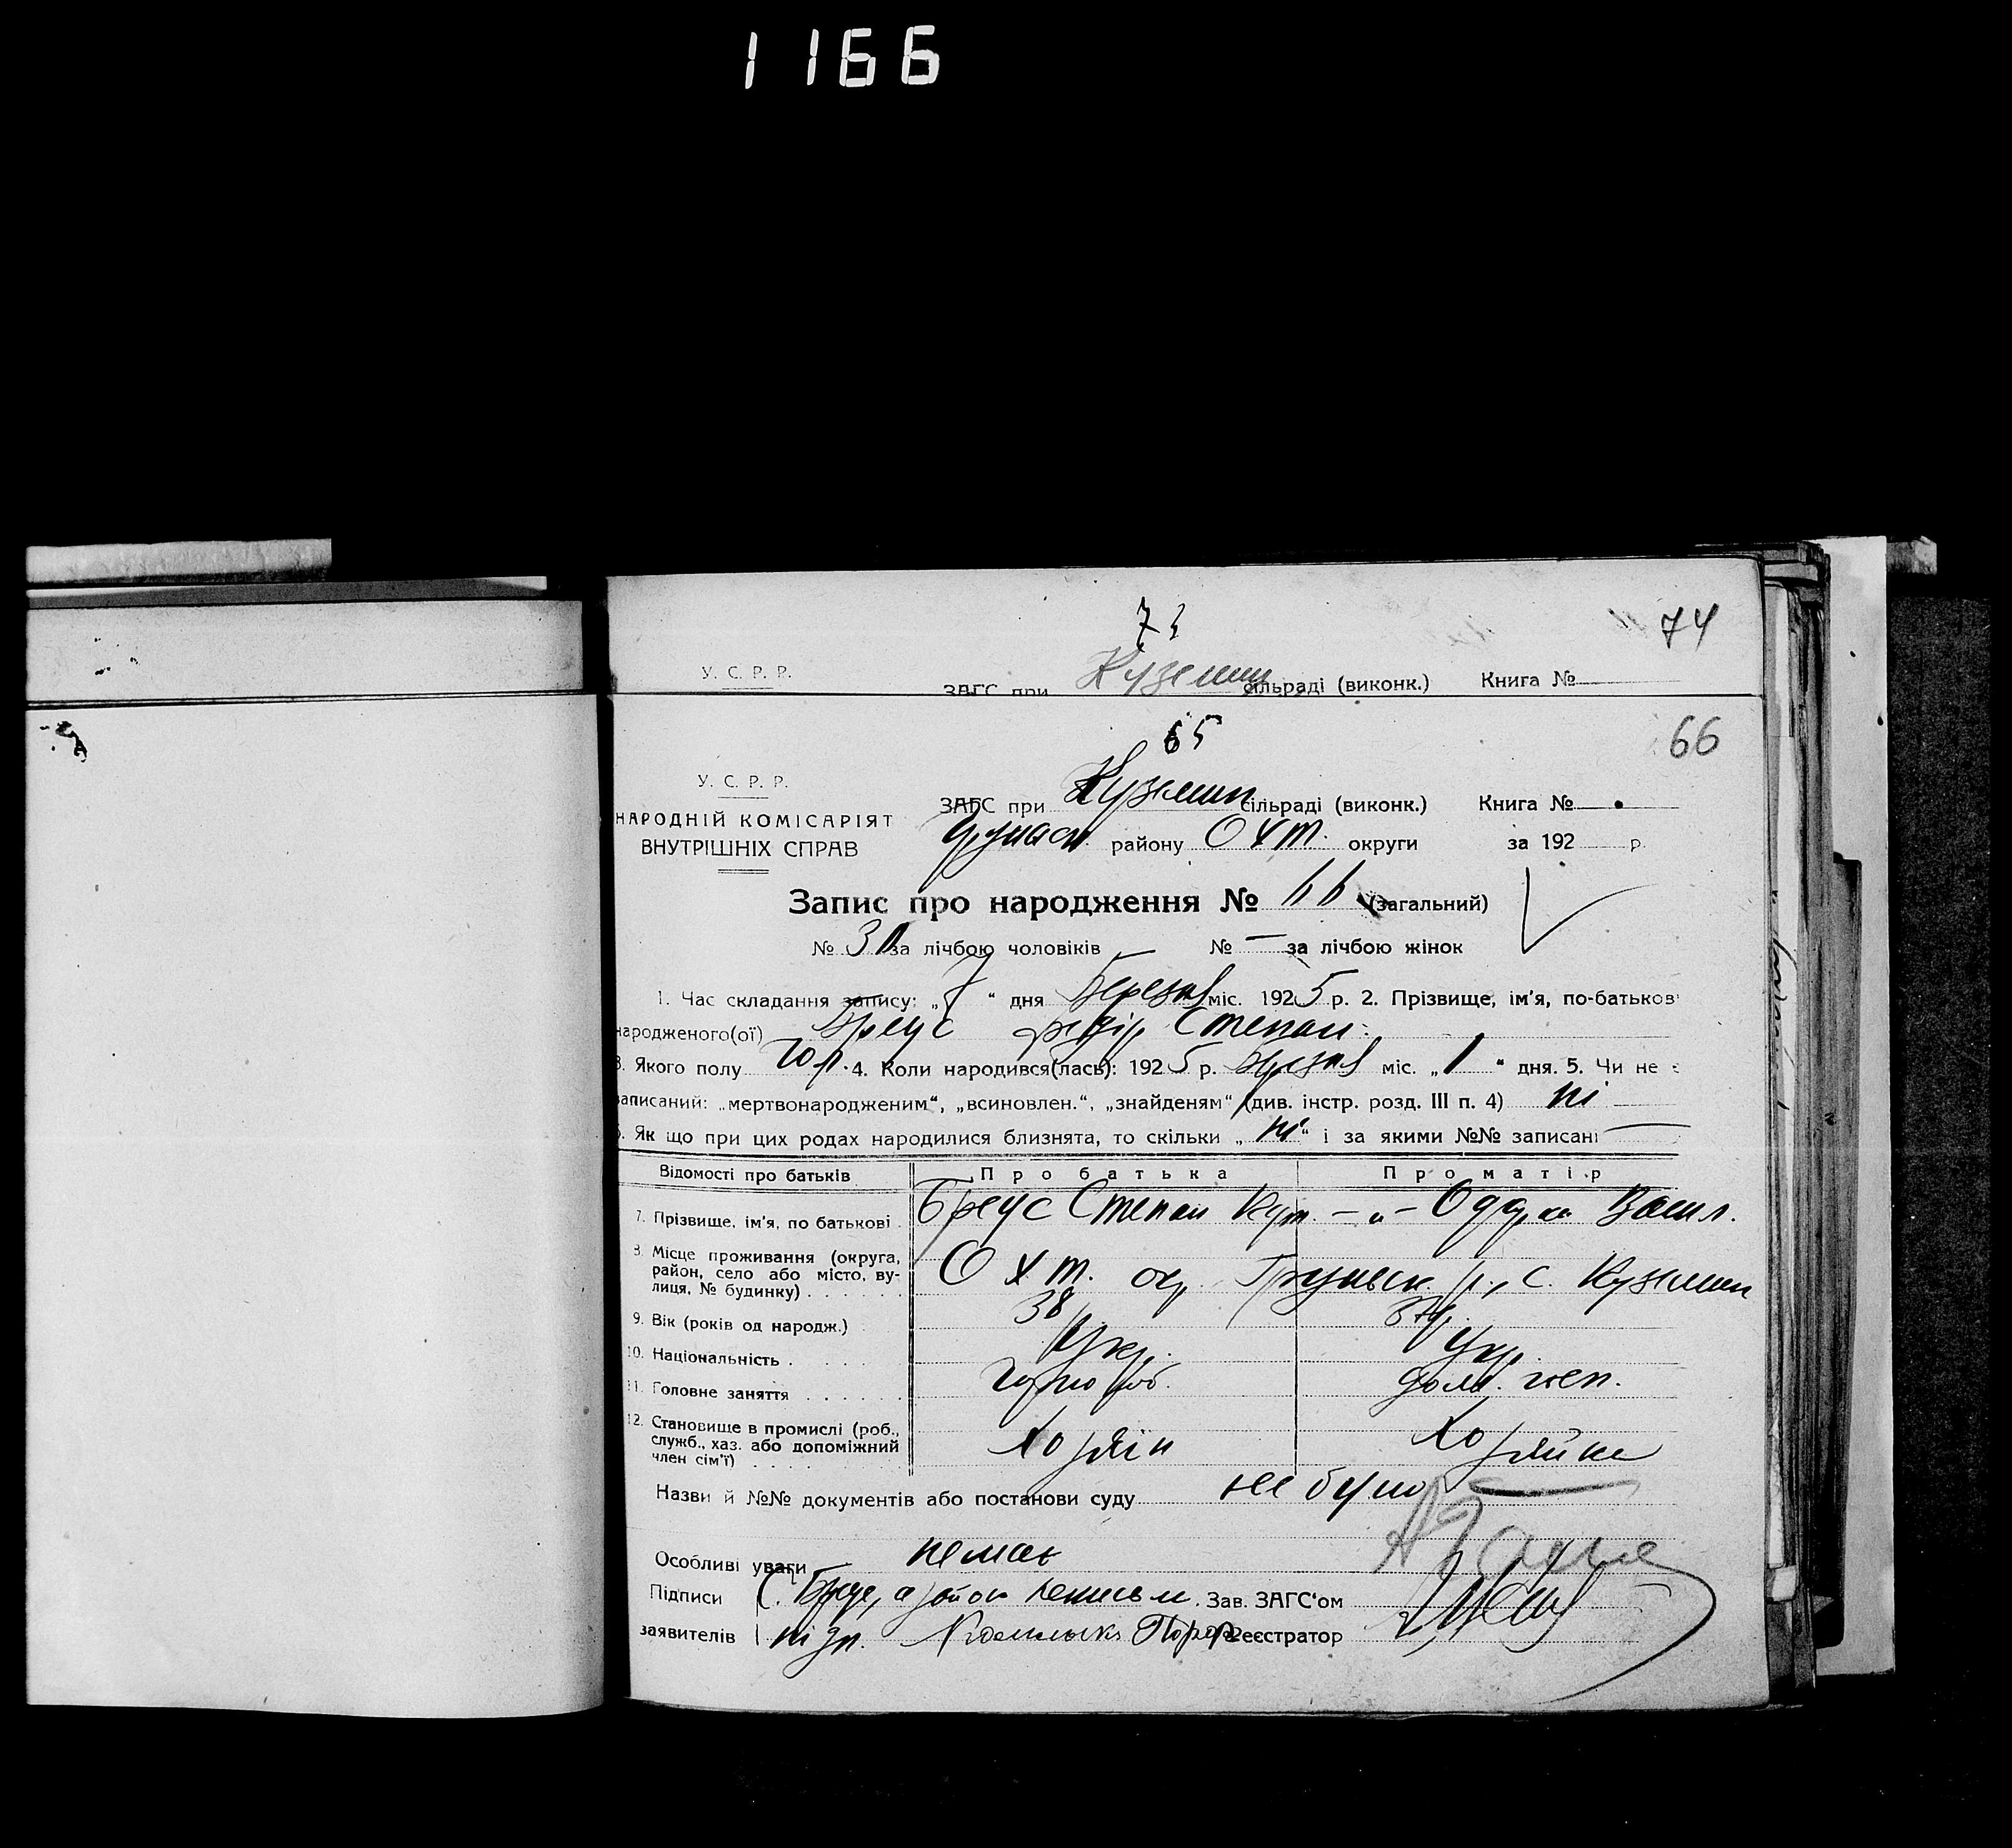 1166
74
У. С. Р. Р.
ЗАГС при Куземин сільраді (виконк.) Книга №
65
66
У. С. Р. Р.
НАРОДНІЙ КОМІСАРІЯТ
ВНУТРІШНІХ СПРАВ
ЗАГС при Куземин сільраді (виконк.) Книга №
району Охт. округи за 192 р.
Запис про народження № 66 (загальний)
№ за лічбою чоловіків № — за лічбою жінок
1. Час складання запису: „7“ дня Березня міс. 1925 р. 2. Прізвище, ім'я, по-батьков
народженого(ої) Бреус Степан.
3. Якого полу 4. Коли народився(лась): 1925 р. Березня міс. „1“ дня. 5. Чи не є
записаний: „мертвонародженим“, „всиновлен.“, „знайденям“ (див. інстр. розд. III п. 4) ні
6. Як що при цих родах народилися близнята, то скільки „ні“ і за якими №№ записані —
Відомості про батьків Про батька Про матір
7. Прізвище, ім'я, по батькові Бреус Степан — „ — Васил.
8. Місце проживання (округа, район, село або місто, ву-
лиця, № будинку) Охт. ок. Груньск. р., с. Куземин
9. Вік (років од народж.) 38 37
10. Національність Укр. Укр.
11. Головне заняття дом.
12. Становище в промислі (роб.,
служб., хаз. або допоміжний
член сім'ї) Хозяїн Хозяйка
Назви й №№ документів або постанови суду не було
Особливі уваги немає
Підписи С. Бреус, а Зав. ЗАГС'ом
заявителів Реєстратор